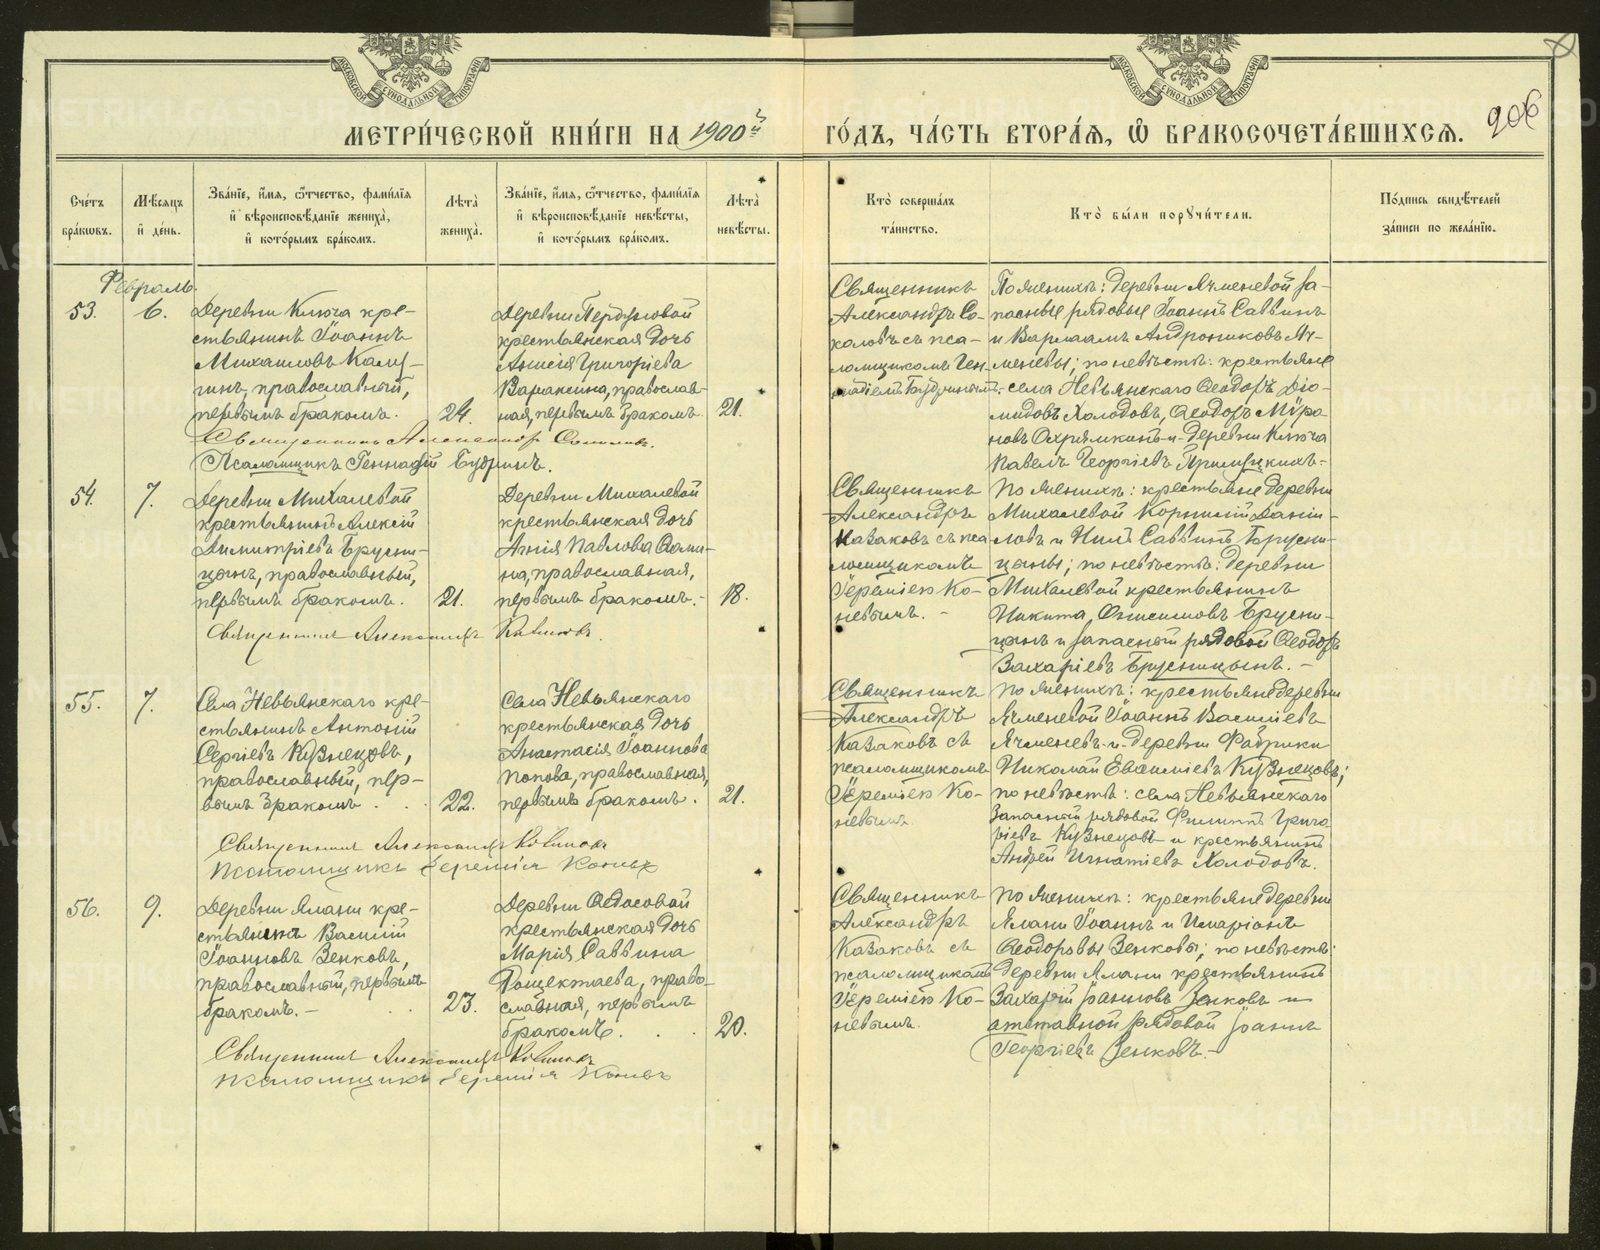 МОСКОВСКОЙ СѴНОДАЛЬНОЙ ТИПОГРАФІИ
МОСКОВСКОЙ СѴНОДАЛЬНОЙ ТИПОГРАФІИ
МЕТРИ́ЧЕСКОЙ КНИ́ГИ НА 1900й ГО́ДЪ, ЧА́СТЬ ВТОРА́Я, Ѡ҆ БРАКОСОЧЕТА́ВШИХСЯ.
206
Сче́тъ бра́ковъ.
Мѣ́сяцъ и҆ де́нь.
Зва́нїе, и҆́мя, ѻ҆́тчество, фами́лїя и҆ вѣроисповѣ́данїе жениха̀, и҆ кото́рымъ бра́комъ.
Лѣта̀ жениха̀.
Зва́нїе, и҆́мя, ѻ҆́тчество, фами́лїя и҆ вѣроисповѣ́данїе невѣ́сты, и҆ кото́рымъ бра́комъ.
Лѣта̀ невѣ́сты.
Кто̀ соверша́лъ та́инство.
Кто̀ бы́ли порꙋчи́тели.
По́дпись свидѣ́телей за́писи по жела́нїю.
Февраль.
53.
6.
Деревни Ключа кре-
стьянинъ Іоаннъ
Михаиловъ
гинъ, православный,
первымъ бракомъ.
24.
Деревни
крестьянская дочь
Анисія Григоріева
Вараксина, православ-
ная, первымъ бракомъ
21.
Священникъ
Александръ Со-
коловъ съ пса-
ломщикомъ Ген-
надіемъ Будринымъ.
По женихѣ: деревни Ячменевой за-
пасные рядовые Іоаннъ Саввинъ
и Варлаамъ Андрониковъ Яч-
меневы; по невѣстѣ: крестьяне
села Невьянскаго Ѳеодоръ Діо-
мидовъ Холодовъ, Ѳеодоръ Міро-
новъ Охрямкинъ и деревни Ключа
Павелъ Георгіевъ
Священникъ Александръ Соколовъ.
Псаломщикъ Геннадій Будринъ.
54.
7.
Деревни Михалевой
крестьянинъ Алексій
Димитріевъ Брусни-
цынъ, православный,
первымъ бракомъ.
21.
Деревни Михалевой
крестьянская дочь
Агнія Павлова Ѳоми-
на, православная,
первымъ бракомъ.
18.
Священникъ
Александръ
Казаковъ съ пса
ломщикомъ
Іереміею Ко-
невымъ.
По женихѣ: крестьяне деревни
Михалевой Корнилій Даніи-
ловъ и Нилъ Саввинъ Брусни-
цыны; по невѣстѣ: деревни
Михалевой крестьянинъ
Никита Онисимовъ Брусни-
цынъ и запасный рядовой Ѳеодоръ
Захаріевъ Брусницынъ.
Священникъ Александръ Казаковъ.
55.
7.
Села Невьянскаго кре-
стьянинъ Антоній
Сергіевъ Кузнецовъ,
православный, пер-
вымъ бракомъ
22.
Села Невьянскаго
крестьянская дочь
Анастасія Іоаннова
Попова, православная,
первымъ бракомъ.
21.
Священникъ
Александръ
Казаковъ съ
псаломщикомъ
Іереміею Ко-
невымъ.
По женихѣ: крестьяне деревни
Ячменевой Іоаннъ Василіевъ
Ячменевъ и деревни Фабрики
Николай Евѳиміевъ Кузнецовъ;
по невѣстѣ: села Невьянскаго
Запасный рядовой Филиппъ Григо
ріевъ Кузнецовъ и крестьянинъ
Андрей Игнатіевъ Холодовъ.
Священникъ Александръ Казаковъ
Псаломщикъ Іеремія Коневъ
56.
9.
Деревни Ялани кре-
стьянинъ Василій
Іоанновъ Зенковъ,
православный, первымъ
бракомъ.
23.
Деревни Ѳедосовой
крестьянская дочь
Марія Саввина
Рощектаева, право-
славная, первымъ
бракомъ.
20.
Священникъ
Александръ
Казаковъ съ
псаломщикомъ
Іереміею Ко-
невымъ.
По женихѣ: крестьяне деревни
Ялани Іоаннъ и Иларіонъ
Ѳеодоровы Зенковы; по невѣстѣ:
деревни Ялани крестьянинъ
Захарій Іоанновъ Зенковъ и
отставной рядовой Іоаннъ
Георгіевъ Зенковъ.
Священникъ Александръ Казаковъ
Псаломщикъ Іеремія Коневъ
METRIKI.GASO-URAL.RU